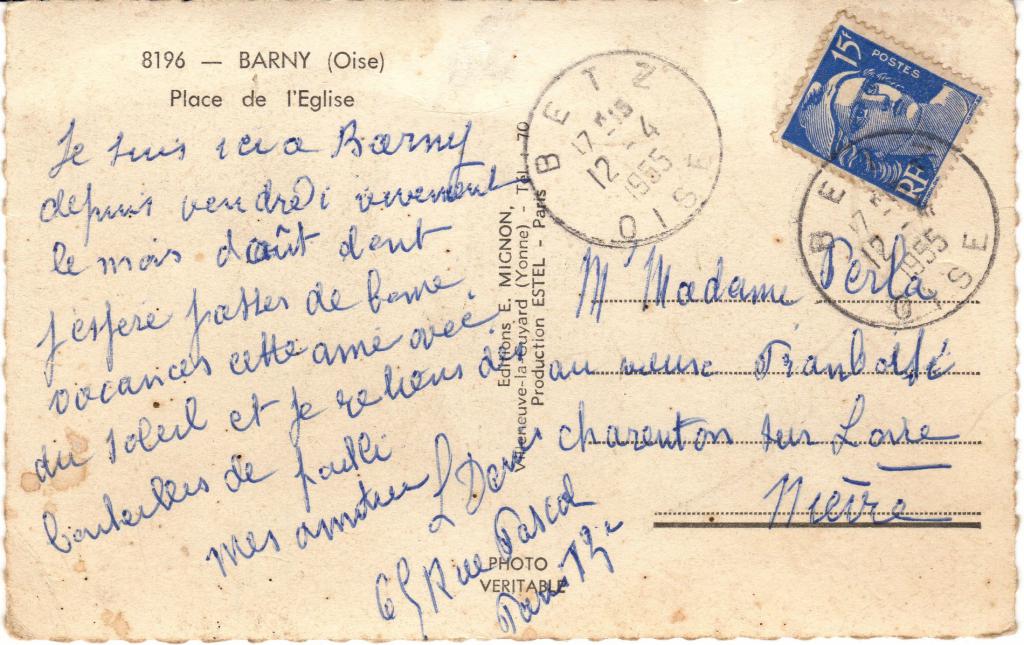 8196 — BARNY (Oise)
Place de l'Eglise
Je suis ici a Barny
depuis vendredi vivement
le mois d'août dont
j'espère passer de bonne
vacances cette anné avec
du soleil et je
bouteilles de
mes
L Denis
65 Rue Pascal
Paris 13e
Editions E. MIGNON,
Villeneuve-la-Guyard (Yonne) - Tél. : 70
Production ESTEL - Paris
PHOTO
VERITABLE
BETZ
17 12 - 4
1955
OISE
15f
POSTES
RF
BETZ
17 12 - 4
1955
OISE
Mr Madame Perla
au vieux
charenton sur Loire
Nièvre